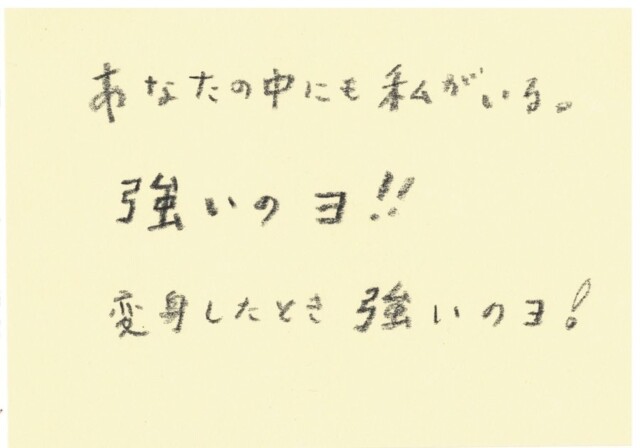 あなたの中にも私がいる。
強いのヨ!!
変身したとき強いのヨ!